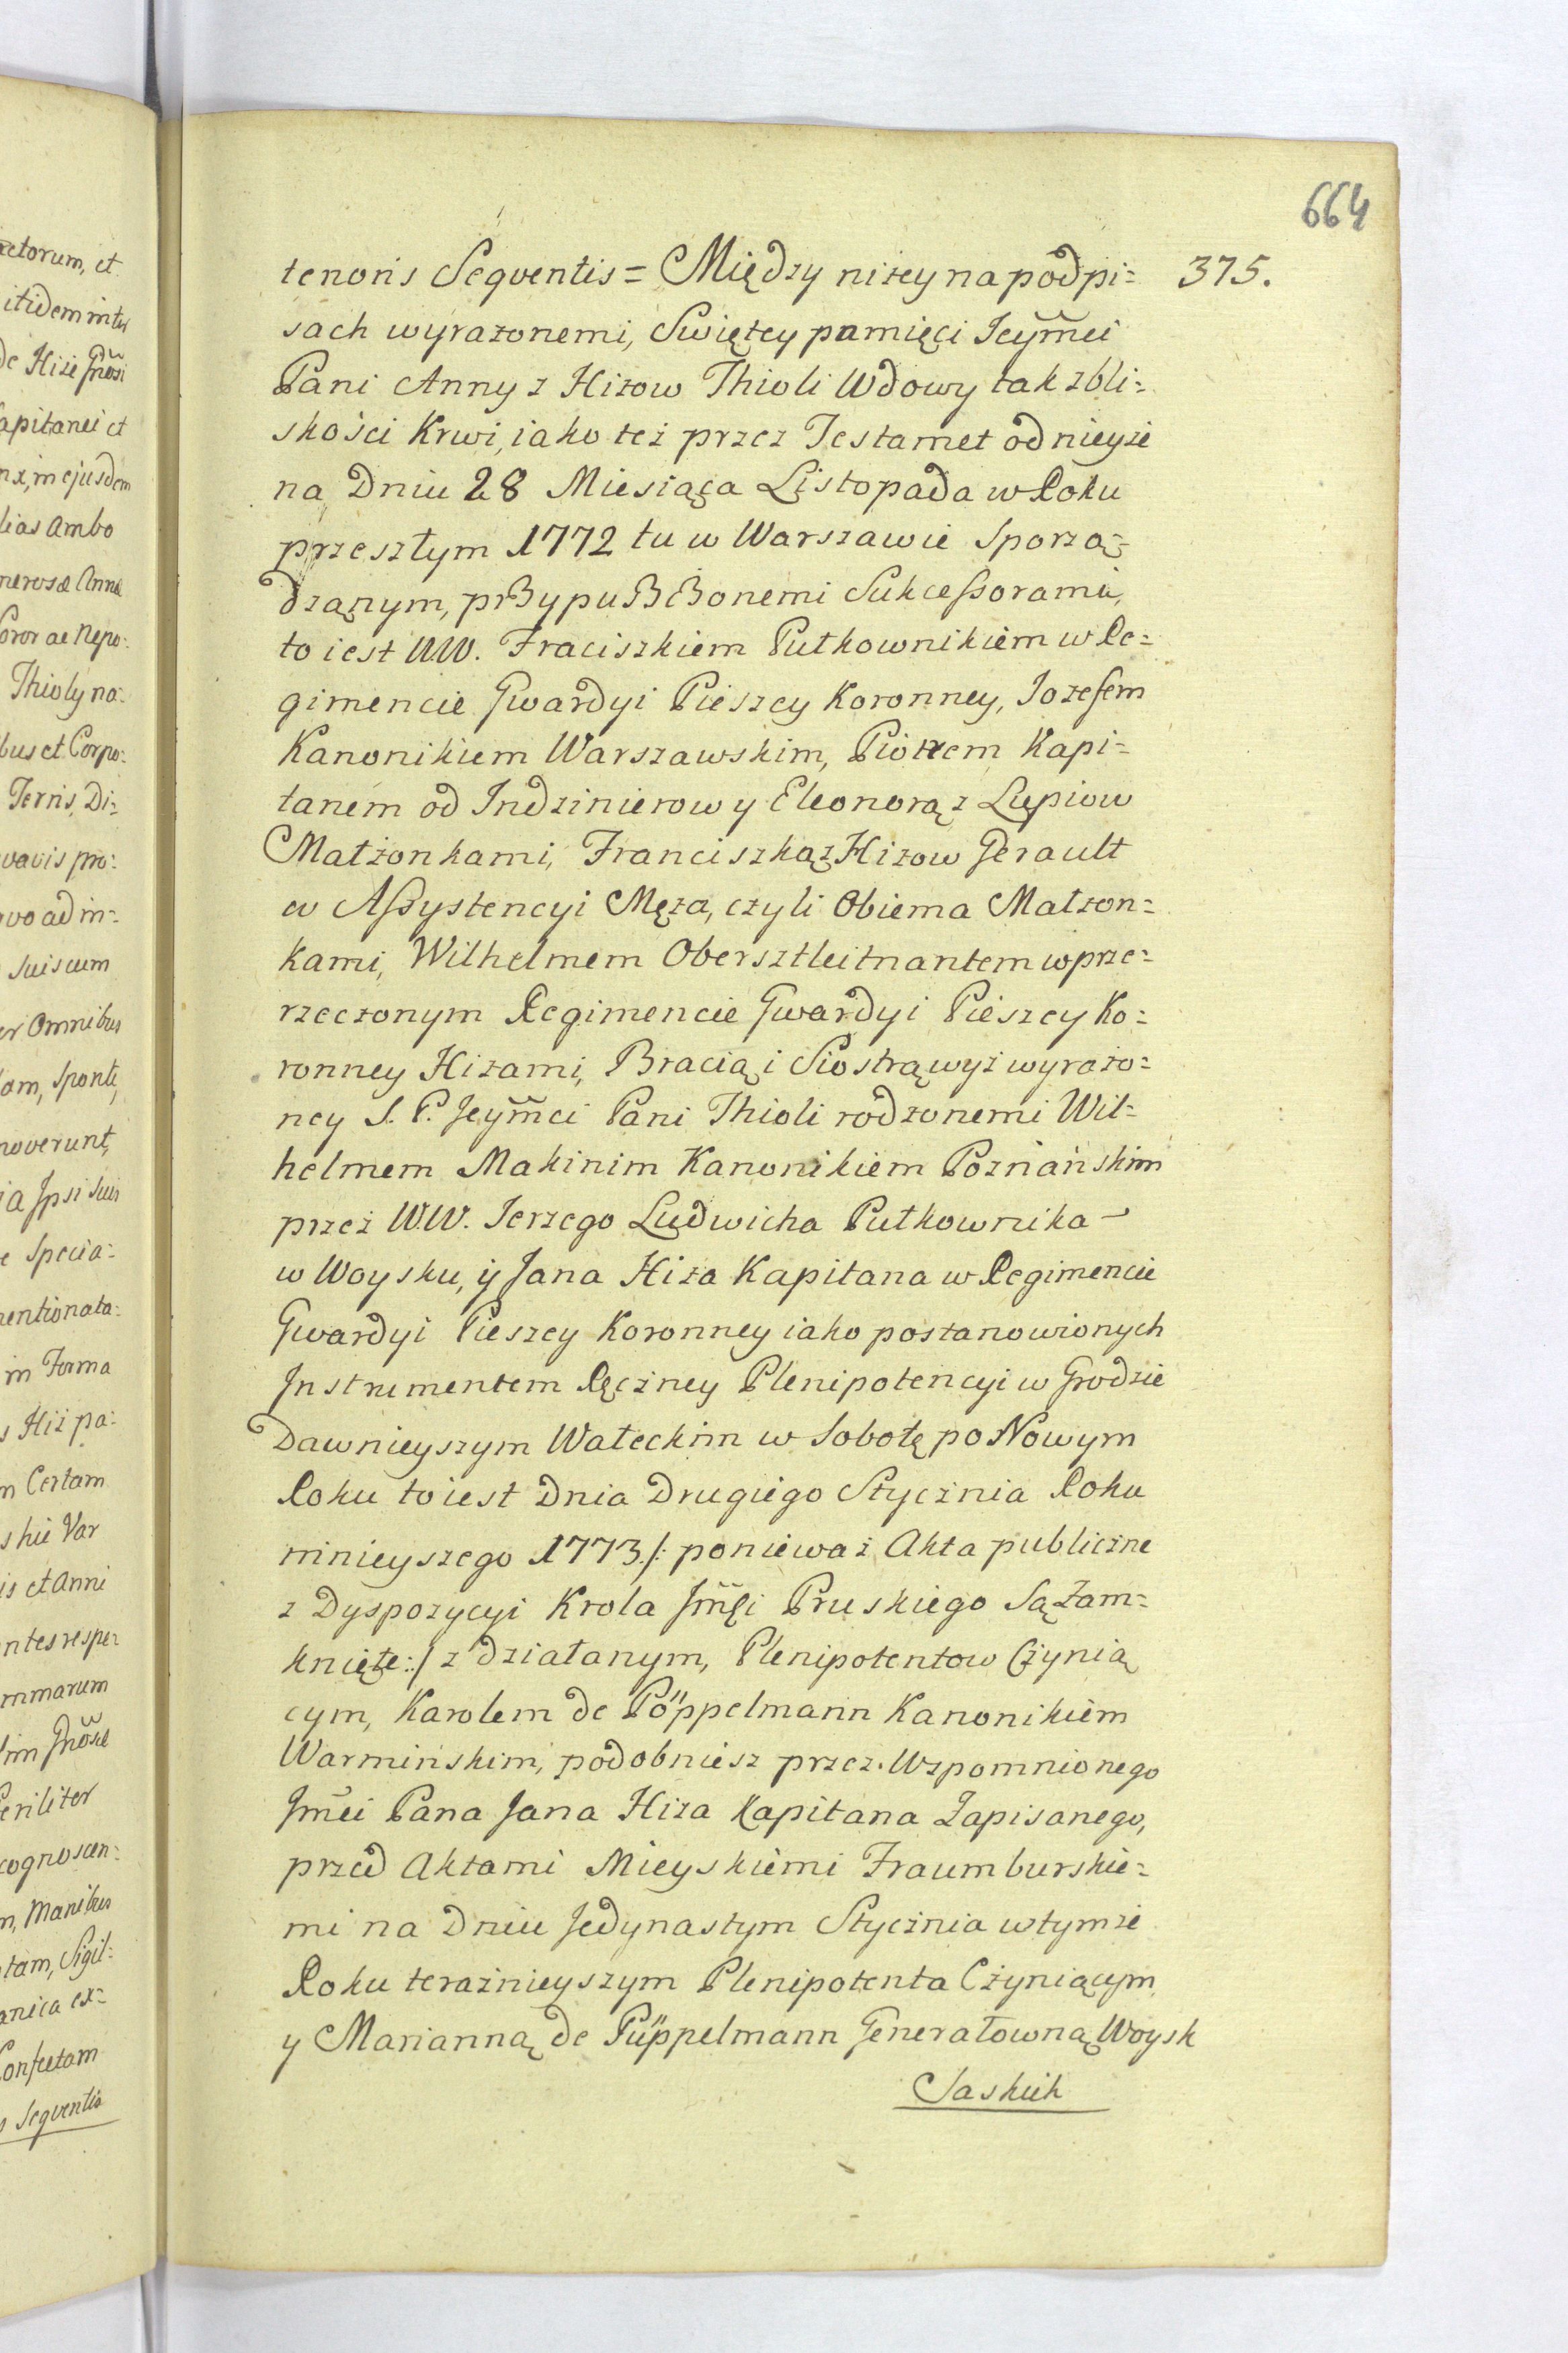 664
tenoris Seqventis = Między niżey na podpi=
375.
sach wyrażonemi, Swiętey pamięci Jeymci
Pani Anny z Hizow Thioli Wdowy tak z bli=
skości Krwi, iako też przez Testamet od nieyże
na Dniu 28 Miesiąca Listopada w Roku
przeszłym 1772 tu w Warszawie Sporzą=
dzanym, przypuszczonemi Sukcessorami,
to iest WW. Fraciszkiem Pułkownikiem w Re=
gimencie Gwardyi Pieszey Koronney, Jozefem
Kanonikiem Warszawskim, Piotrem Kapi=
tanem od Indzinierow y Eleonorą z Lupiow
Małżonkami, Franciszką z Hizow Gerault
w Assystencyi Męża, czyli Obiema Małżon=
kami, Wilhelmem Obersztleitnantem w prze=
rzeczonym Regimencie Gwardyi Pieszey Ko=
ronney Hizami, Bracią i Siostrą wyż wyrażo=
ney S. P. Jeymci Pani Thioli rodzonemi Wil=
helmem Makinim Kanonikiem Poznańskim
przez WW. Jerzego Ludwicha Pułkownika
w Woysku, y Jana Hiża Kapitana w Regimencie
Gwardyi Pieszey Koronney iako postanowionych
Instrumentem Ręczney Plenipotencyi w Grodzie
Dawnieyszym Wałeckim w Sobotę po Nowym
Roku to iest Dnia Drugiego Stycznia Roku
ninieyszego 1773 /: ponieważ Akta publiczne
z Dyspozycyi Krola Jmci Pruskiego Są Zam=
knięte :/ z działanym, Plenipotentow Czynią
cym, Karolem de Pöppelmann Kanonikiem
Warmińskim, podobniesz przez Wzpomnionego
Jmci Pana Jana Hiża Kapitana Zapisanego,
przed Aktami Mieyskiemi Fraumburskie=
mi na Dniu Jedynastym Stycznia w tymże
Roku terażnieyszym Plenipotenta Czyniącym
y Marianną de Püppelmann Generałowną Woysk
Saskich
actorum, et
itidem inter
de Hiże Gnosi
Capitanei et
nx, in ejusdem
lias ambo
nerosæ Annæ
Soror ac Nepo:
Thioly na:
bus et Corpo:
Terris, Di:
vavis pro:
uo ad in:
suis cum
er Omnibus
lam, Sponte,
noverunt,
ia Ipsi suis
e Specia:
mentionata:
in Forma
s Hiż pa:
m Certam
skie Var
is et Anni
ntes respe:
mmarum
Gnosæ
eriliter
cognoscen:
m, Manibus
tam, Sigil:
anica ex:
Confectam
Seqventis